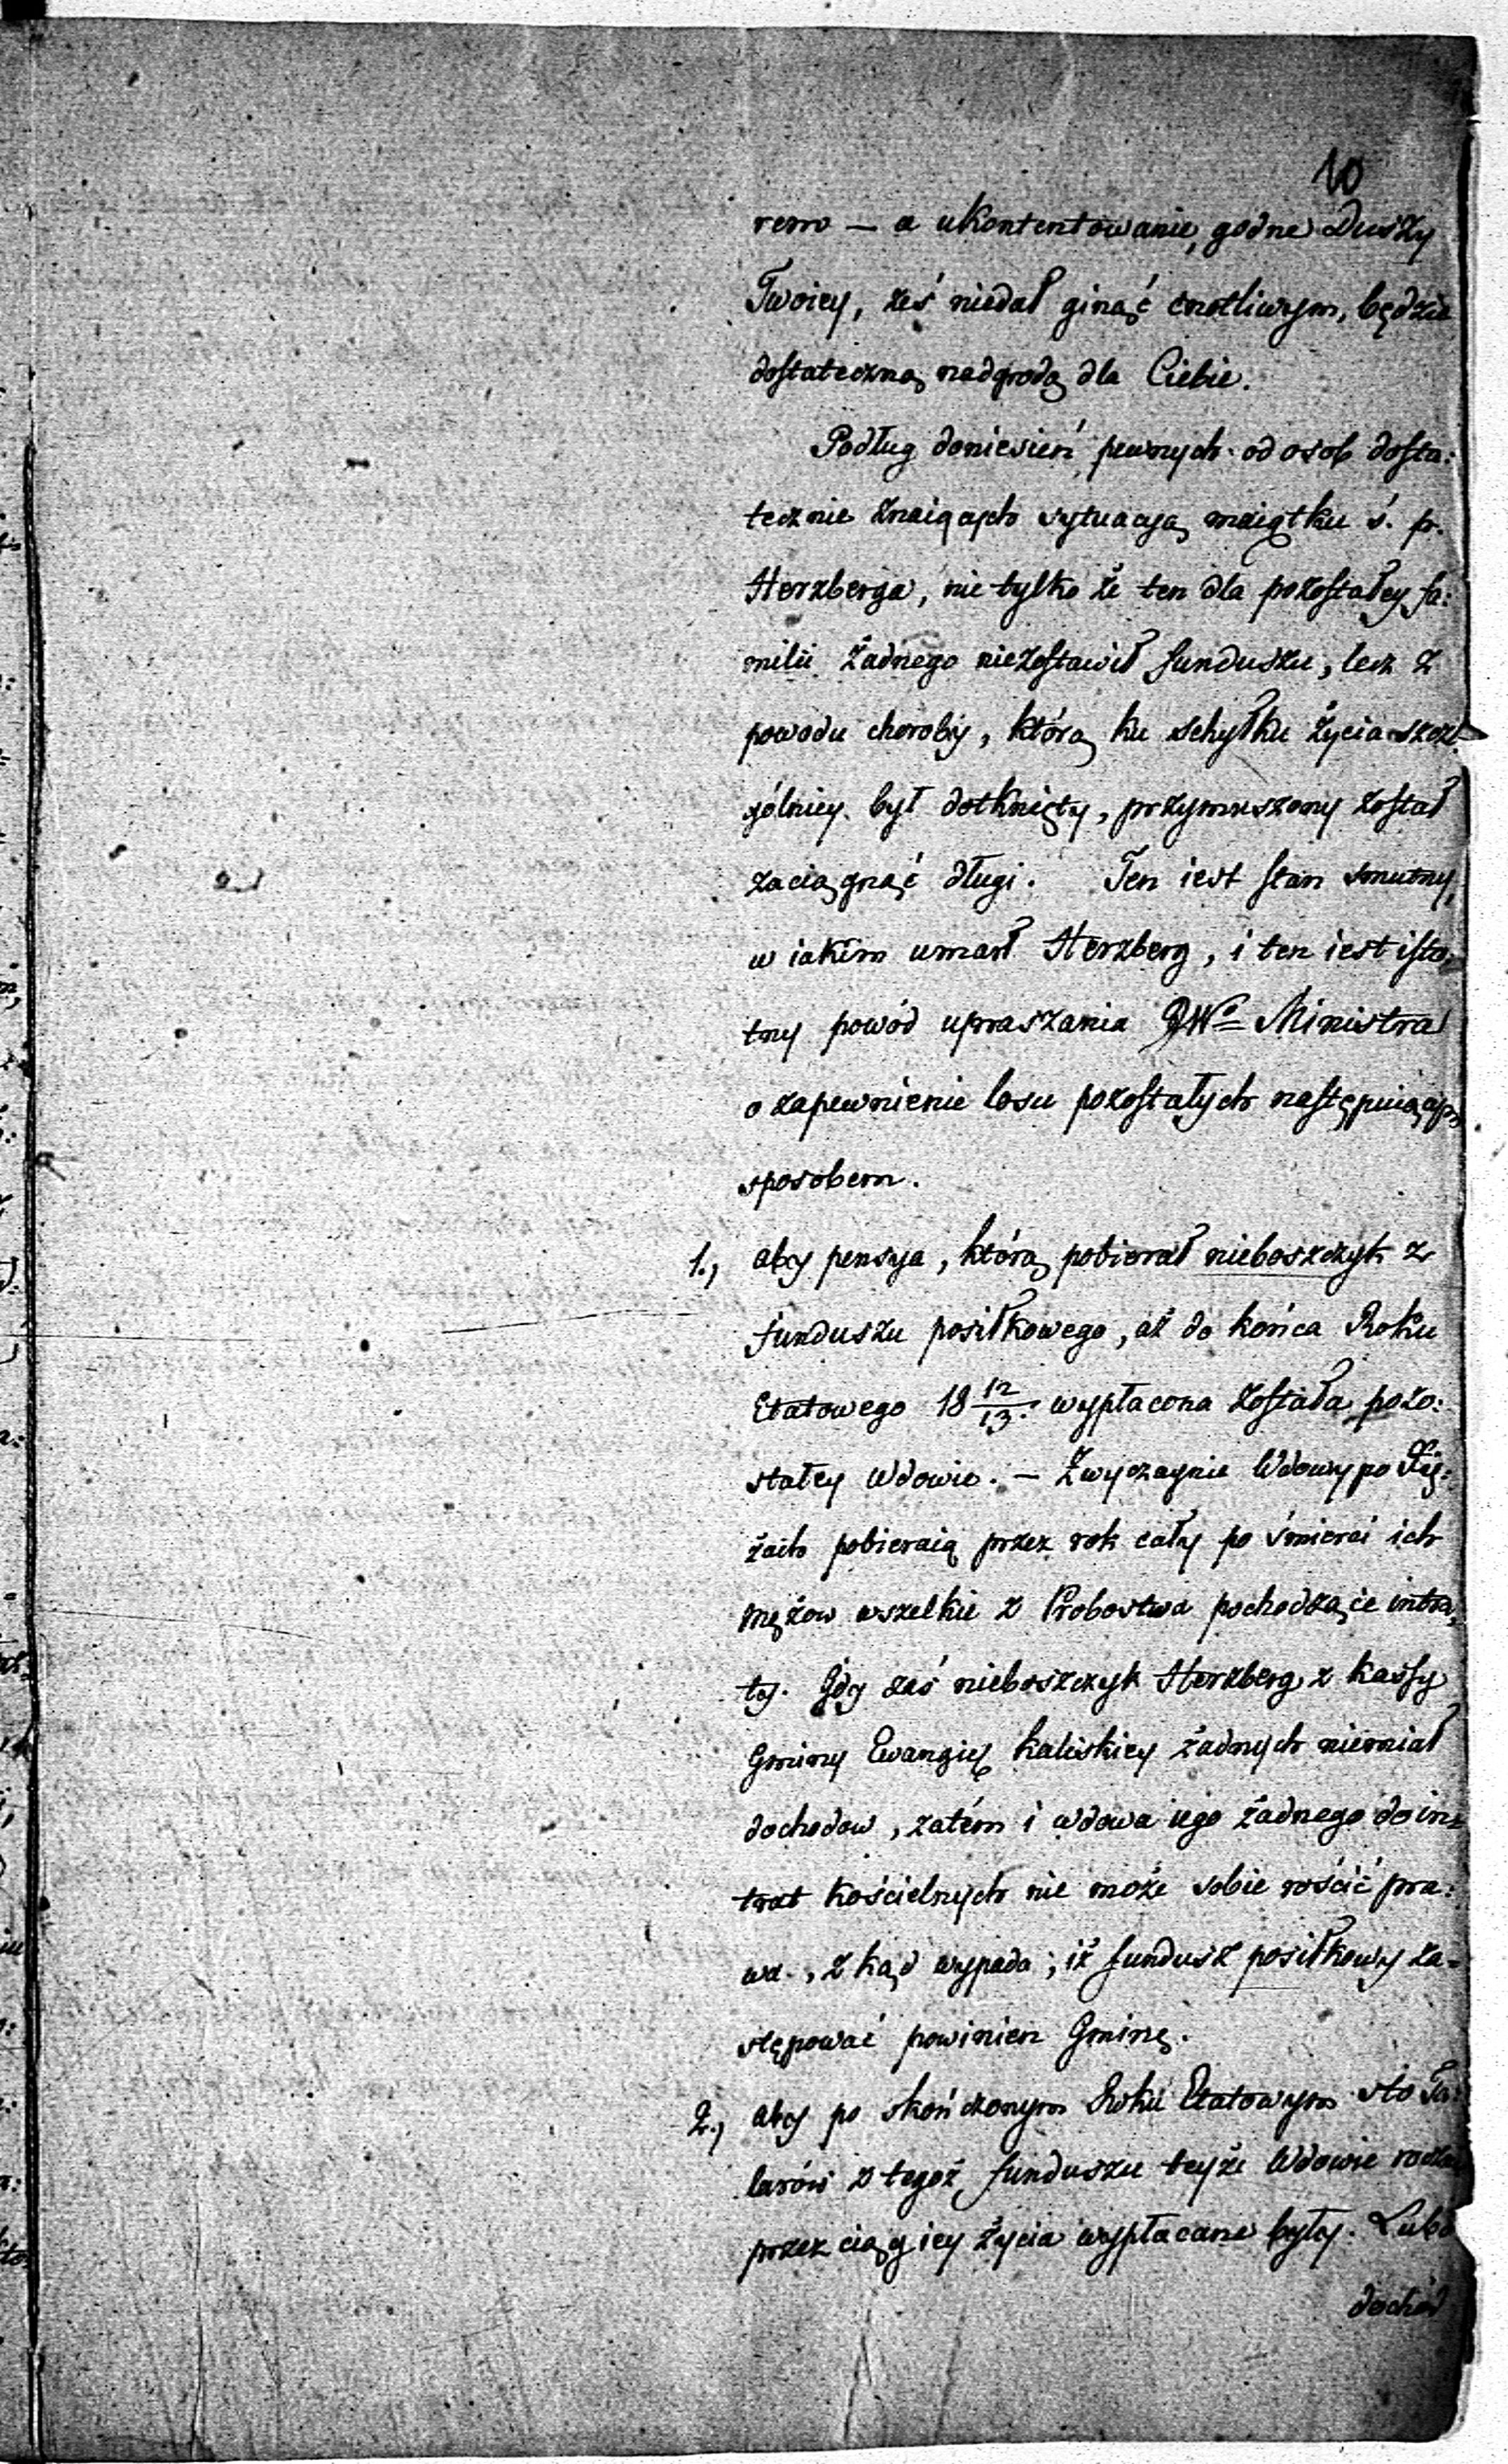 10
remo — a ukontentowanie, godne Duszy
Twoiey, żeś niedał ginąć cnotliwym, będzie
dostateczną nadgrodą dla Ciebie.
Podług doniesień pewnych od osob dosta:
tecznie znaiących sytuacyą maiątku ś. p.
Herzberga, nie tylko że ten dla pozostałey fa:
milii żadnego niezostawił funduszu, lecz z
powodu choroby, którą ku schyłku życia szcze:
gólniey był dotknięty, przymuszony został
zaciągnąć długi. Ten iest stan smutny,
w iakim umarł Herzberg, i ten iest isto:
tny powód upraszania JWo Ministra
o zapewnienie losu pozostałych następuiącym
sposobem.
1., aby pensya, którą pobierał nieboszczyk z
funduszu posiłkowego, aż do końca Roku
Etatowego 18 12/13. wypłacona została pozo:
stałey Wdowie. — Zwyczaynie Wdowy po Xię:
żach pobieraią przez rok cały po śmierci ich
mężow wszelkie z Probostwa pochodzące intra:
ty. Gdy zaś nieboszczyk Herzberg z kassy
Gminy Ewangię Kaliskiey żadnych niemiał
dochodow, zatém i wdowa iego żadnego do in:
trat kościelnych nie może sobie rościć pra:
wa., z kąd wypada; iż fundusz posiłkowy za:
stępować powinien Gminę.
2., aby po skończonym Roku Etatowym sto Ta:
larów z tegoż funduszu teyże Wdowie rocznie
przez ciąg iey życia wypłacane były. Lubo
dochód